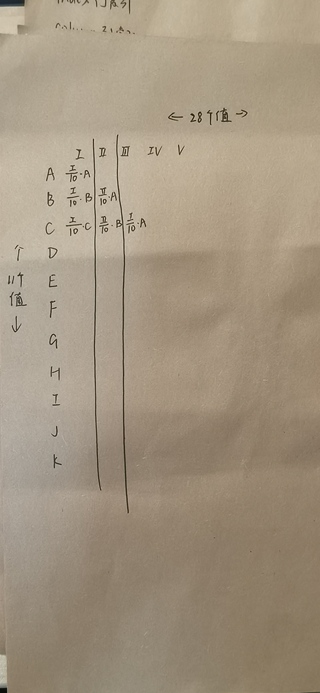 ← 28个值 →
I II III IV V
A I/10·A
B I/10·B II/10·A
C I/10·C II/10·B I/10·A
D
E
F
G
H
I
J
K
↑
11个
值
↓